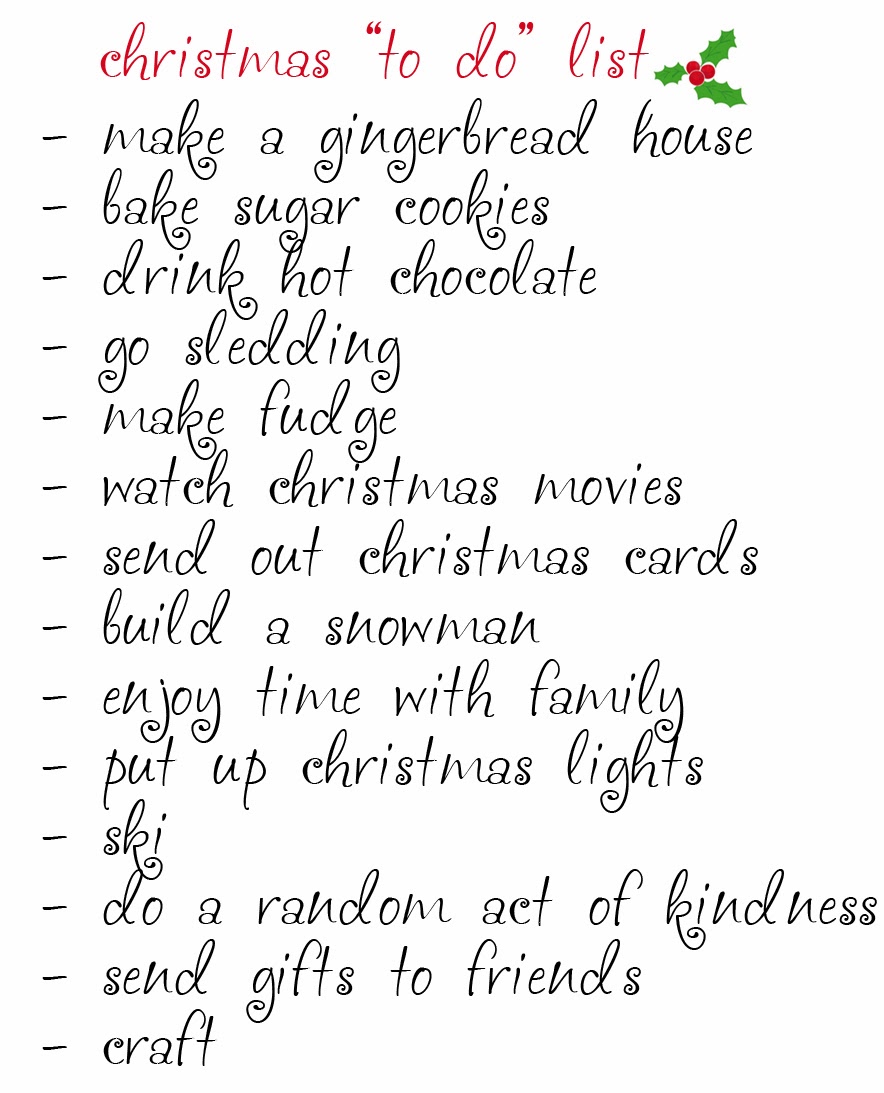 christmas “to do” list
- make a gingerbread house
- bake sugar cookies
- drink hot chocolate
- go sledding
- make fudge
- watch christmas movies
- send out christmas cards
- build a snowman
- enjoy time with family
- put up christmas lights
- ski
- do a random act of kindness
- send gifts to friends
- craft